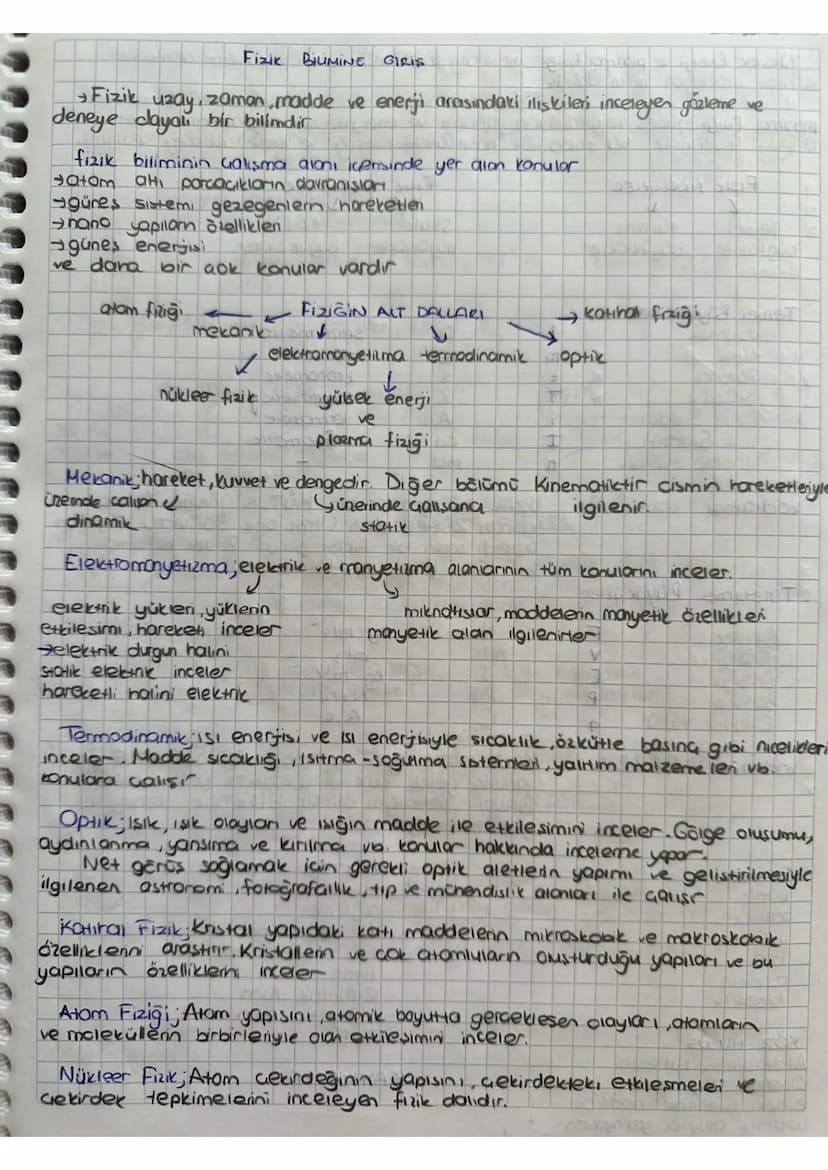 FiZiK BiLiMiNE GiRiS
→Fizik uzay, zaman, madde ve enerji arasındaki iliskileri inceleyen gözleme ve
deneye dayalı bir bilimdir
fizik biliminin calısma alanı icerisinde yer alan konular
→atom altı parcacıkların davranısları
→günes sistemi gezegenlerin hareketleri
→nano yapıların özellikleri
→günes enerjisi
ve daha bir cok konular vardır
atom fiziği ← FiZiĞiN ALT DALLARI → katıhal fiziği
mekanik
elektromanyetizma termodinamik optik
nükleer fizik yüksek enerji
ve
plazma fiziği
Mekanik; hareket, kuvvet ve dengedir. Diğer bölümü kinematiktir cismin hareketleriyle
üzerinde calısan üzerinde calısana ilgilenir.
dinamik statik
Elektromanyetizma; elektrik ve manyetizma alanlarının tüm konularını inceler.
elektrik yükleri, yüklerin mıknatıslar, maddelerin manyetik özellikleri
etkilesimi, hareketi inceler manyetik alan ilgilenirler
→elektrik durgun halini
statik elektrik inceler
hareketli halini elektrik
Termodinamik; ısı enerjisi ve ısı enerjisiyle sıcaklık, özkütle basınc gibi nicelikleri
inceler. Madde sıcaklığı, ısıtma-soğutma sistemleri, yalıtım malzemeleri vb.
konulara calısır
Optik; Isık, ısık olayları ve ısığın madde ile etkilesimini inceler. Gölge olusumu,
aydınlanma, yansıma ve kırılma vb. konular hakkında inceleme yapar.
Net görüs sağlamak icin gerekli optik aletlerin yapımı ve gelistirilmesiyle
ilgilenen astronomi, fotoğrafcılık, tıp ve mühendislik alanları ile calısır
Katıhal Fizik; Kristal yapıdaki katı maddelerin mikroskobik ve makroskobik
özelliklerini arastırır. Kristallerin ve cok atomluların olusturduğu yapıları ve bu
yapıların özelliklerini inceler
Atom Fiziği; Atom yapısını, atomik boyutta gerceklesen olayları, atomların
ve moleküllerin birbirleriyle olan etkilesimini inceler.
Nükleer Fizik; Atom cekirdeğinin yapısını, cekirdekteki etkilesmeleri ve
cekirdek tepkimelerini inceleyen fizik dalıdır.